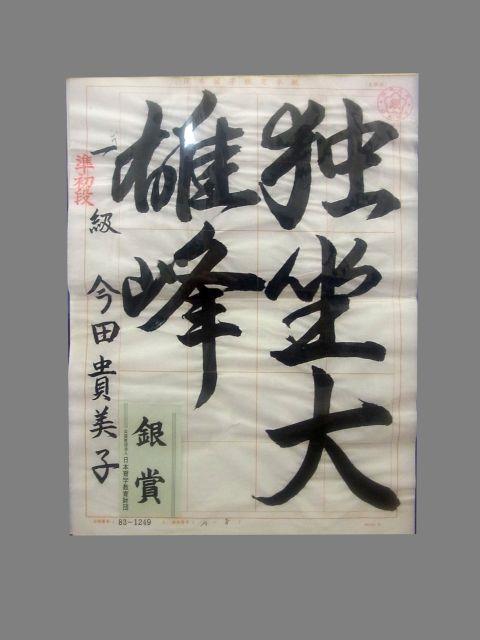 独坐大
雄峰
一級
準初段
今田貴美子
銀賞
日本習字教育財団
83-1249